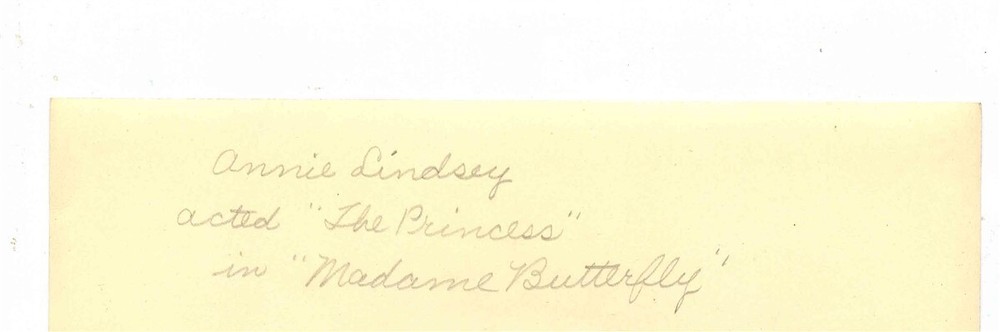 Annie Lindsey
acted "The Princess"
in "Madame Butterfly"